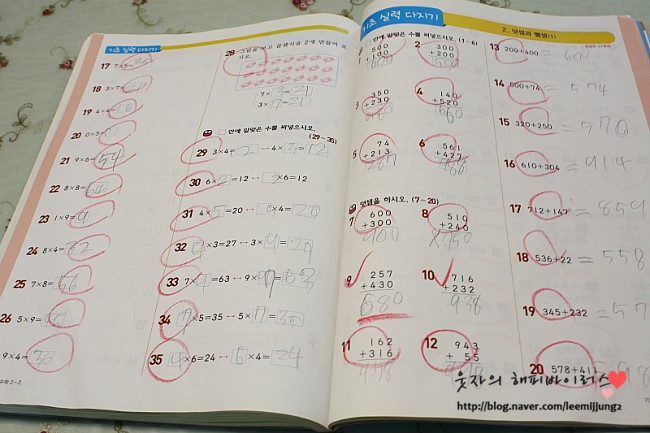 기초 실력 다지기
17 7×5=
18 3×7=
19 4×4=
20 0×5=
21 9×6=54
22 8×8=
23 1×9=9
24 8×4=32
25 7×8=56
26 5×9=
9×4=36
28 그림을 보고 곱셈식을 2개 만들어 보
시오.
7×3=21
3×7=21
안에 알맞은 수를 써넣으시오.
(29~35)
29 3×4=12 ↔ 4×3=12
30 6×2=12 ↔ 2×6=12
31 4×5=20 ↔ 5×4=20
32 9×3=27 ↔ 3×9=27
33 7×9=63 ↔ 9×7=63
34 7×5=35 ↔ 5×7=35
35 4×6=24 ↔ 6×4=24
기초 실력 다지기
2. 덧셈과 뺄셈(1)
안에 알맞은 수를 써넣으시오. (1~6)
500
+100
2 300
+200
500
350
+230
4 140
+520
660
5 74
+213
287
6 561
+427
988
덧셈을 하시오. (7~20)
7 600
+300
900
8 510
+240
750
9 257
+430
680
10 716
+232
938
11 162
+316
478
12 943
+ 55
998
13 200+400=600
14 500+74=574
15 320+250=570
16 610+304=914
17 712+147=859
18 536+22=558
19 345+232=57
20 578+411
웃자의 해피바이러스
http://blog.naver.com/leemijjung2